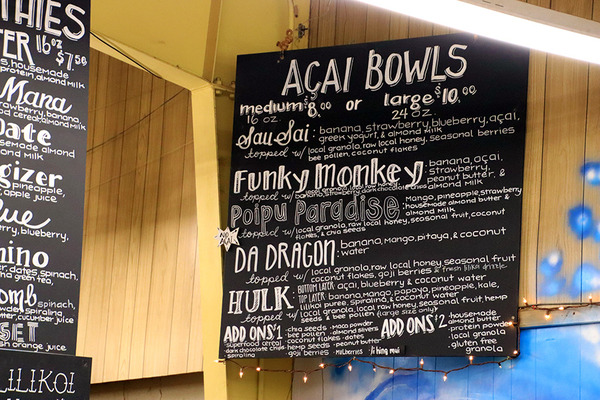 THIES
ER 16oz $7.50
housemade
protein, almond milk
Mana
strawberry, banana,
food cereal, almond milk
Date
housemade almond
and milk
gizer
pineapple,
apple juice
lue
blueberry,
nino
dates, spinach
green tea,
omb spinach,
cucumber juice
SET
fresh orange juice
LILIKOI
AÇAI BOWLS
medium $8.00 or large $10.00
16 oz. 24 oz.
Sau Sai: banana, strawberry, blueberry, açai,
greek yogurt, & almond milk
topped w/ local granola, raw local honey, seasonal berries
bee pollen, coconut flakes
Funky Monkey: banana, açai,
strawberry,
peanut butter, &
almond milk
topped w/ local granola, raw local honey
banana, strawberry, dark chocolate
Poipu Paradise: Mango, pineapple, strawberry
housemade almond butter &
almond milk
topped w/ local granola, raw local honey, seasonal fruit, coconut
flakes, & chia seeds
DA DRAGON: banana, Mango, pitaya, & coconut
water
topped w/ local granola, raw local honey, seasonal fruit
coconut flakes, goji berries & fresh lilikoi drizzle
HULK: BOTTOM LAYER açai, blueberry, & coconut water
TOP LAYER banana, mango, papaya, pineapple, kale,
lilikoi puree, spirulina, & coconut water
topped w/ local granola, local raw honey, seasonal fruit, hemp
seeds & bee pollen (large size only)
ADD ONS $1 · chia seeds · maca powder
· bee pollen · almond slivers
superfood cereal · coconut flakes · dates
dark chocolate chips · hemp seeds · peanut butter
· spirulina · goji berries · mulberries · li hing mui
ADD ONS $2 · housemade
almond butter
· protein powder
· local granola
· gluten free
granola